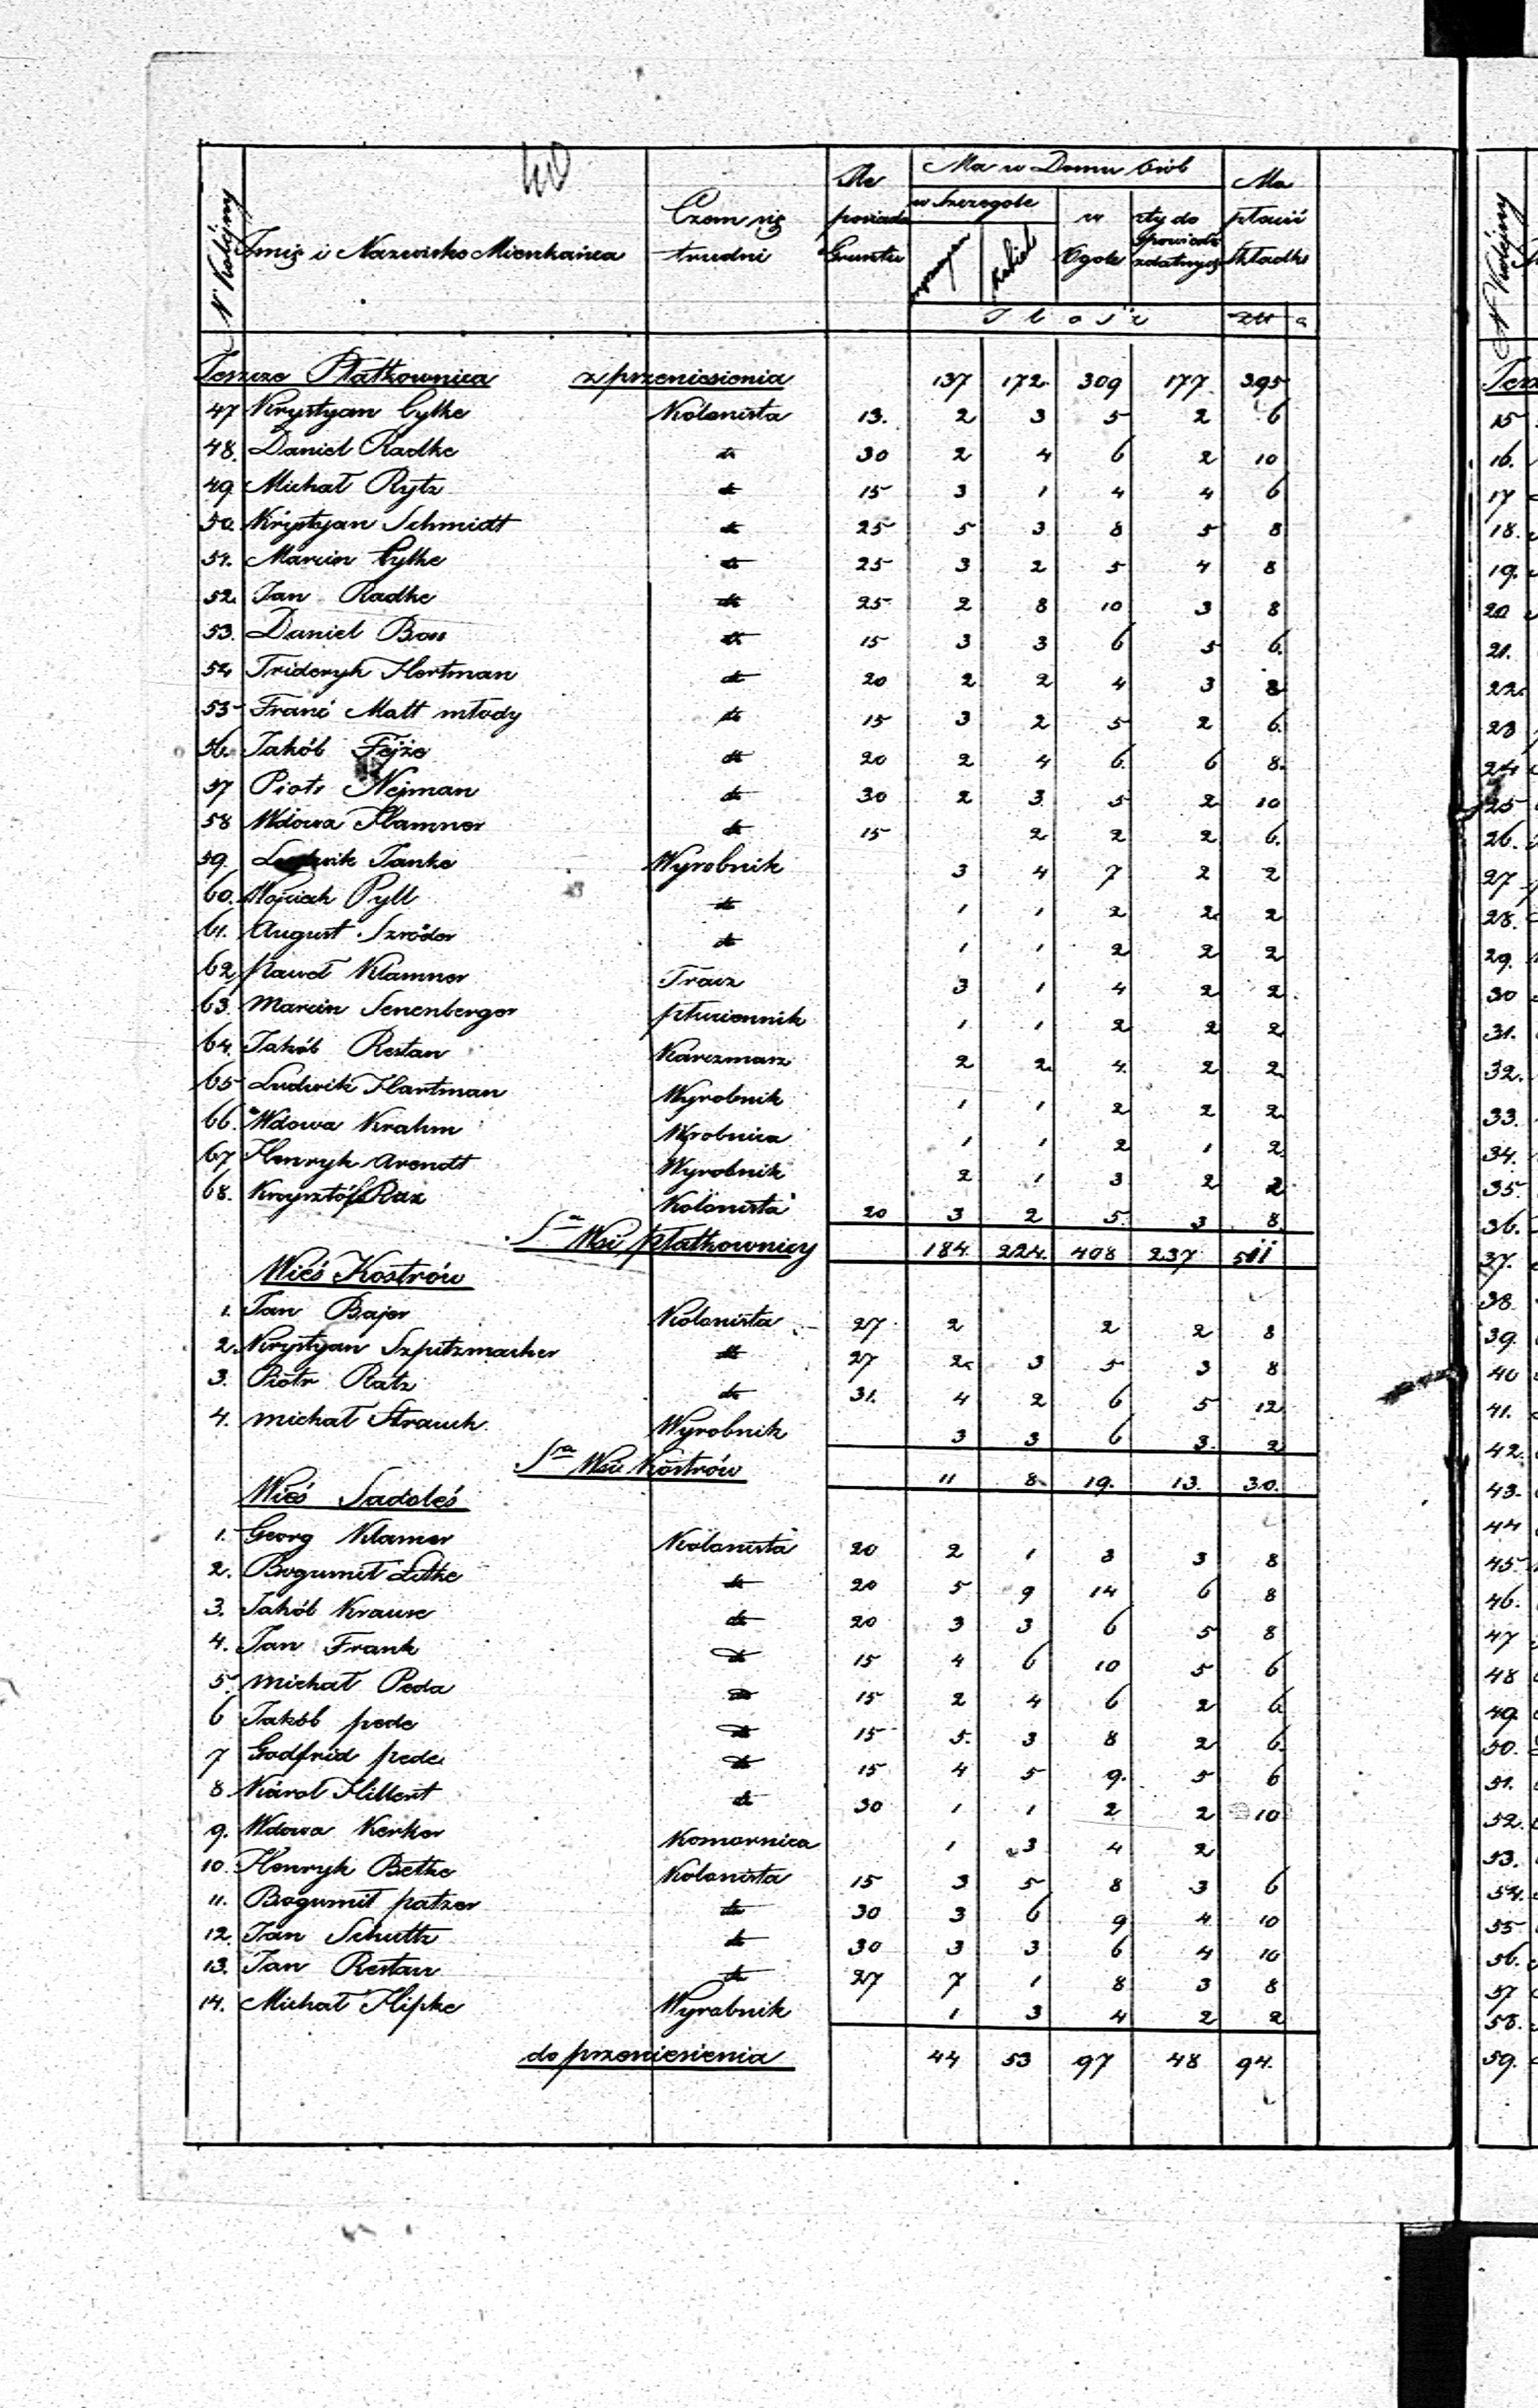 40
Nr Kolejny | Imię i Nazwisko Mieszkańca | Czem się trudni | Ile posiada Gruntu | Ma w Domu Osób | Ma płacić Składki
w Szczególe | w Ogóle | zdatnych
mężczyzn | kobiet
Ilość | Złł | g
Jeszcze Płatkownica z przeniesienia 137 172 309 177 395
47 Krystyan Cylke Kolonista 13. 2 3 5 2 6
48. Daniel Radke dt 30 2 4 6 2 10
49. Michał Rytz dt 15 3 1 4 4 6
50. Krystyan Schmidt dt 25 5 3 8 5 8
51. Marcin Cylke dt 25 3 2 5 4 8
52. Jan Radke dt 25 2 8 10 3 8
53. Daniel Bon dt 15 3 3 6 5 6.
54 Frideryk Hertman dt 20 2 2 4 3 8
55 Franc Matt młody dt 15 3 2 5 2 6.
56. Jakób Fejże dt 20 2 4 6. 6 8.
57 Piotr Nejman dt 30 2 3 5 2 10
58 Wdowa Hamner dt 15 2 2 2 6.
59. Ludwik Janke Wyrobnik 3 4 7 2 2
60. Wojciech Pyll dt 1 1 2 2 2
61. August Szröder dt 1 1 2 2 2
62 Paweł Klamner Tracz 3 1 4 2 2
63. Marcin Senenberger płuciennik 1 1 2 2 2
64. Jakób Restau Karczmarz 2 2 4. 2 2
65 Ludwik Hartman Wyrobnik 1 1 2 2 2
66. Wdowa Krahm Wyrobnica 1 1 2 1 2
67 Henryk Arendt Wyrobnik 2 1 3 2 2
68. Krzysztóf Rux Kolonista 20 3 2 5. 3 8
Sa Wsi Płatkownicy 184. 224. 408 237 511
Wieś Kostrów
1. Jan Bajer Kolonista 27 2 2 2 8
2. Krystyan Szpitzmacher dt 27 2 3 5 3 8
3. Piotr Ratz dt 31. 4 2 6 5 12
4. Michał Strauch Wyrobnik 3 3 6 3. 2
Sa Wsi Kostrów 11 8. 19. 13. 30.
Wieś Sadoleś
1. Georg Klamer Kolonista 20 2 1 3 3 8
2. Bogumił Litke dt 20 5 9 14 6 8
3. Jakób Krause dt 20 3 3 6 5 8
4. Jan Frank dt 15 4 6 10 5 6
5. Michał Peda dt 15 2 4 6 2 6
6 Jakób pede dt 15 5. 3 8 2 6.
7 Godfrid pede dt 15 4 5 9. 5 6
8. Karol Hillert dt 30 1 1 2 2 10
9. Wdowa Kerker Komornica 1 3 4 2
10. Henryk Betke Kolonista 15 3 5 8 3 6
11. Bogumił patzer dt 30 3 6 9 4 10
12. Jan Schultz dt 30 3 3 6 4 10
13. Jan Restau dt 27 7 1 8 3 8
14. Michał Hipke Wyrobnik 1 3 4 2 2
do przeniesienia 44 53 97 48 94.